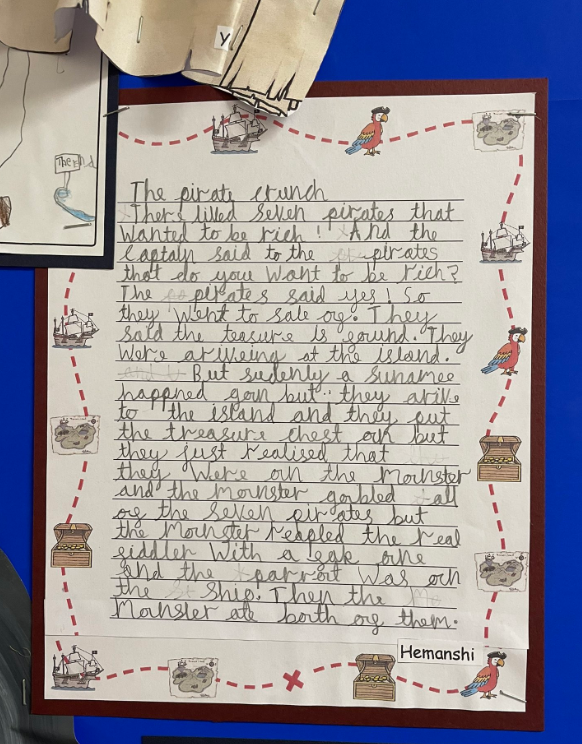 Y
The end
The pirate crunch
There lived seven pirates that
wanted to be rich! And the
captain said to the pirates
that do youe want to be rich?
The pirates said yes! So
they went to sale og. They
said the teasure is eound. They
were ariveing at the island.
But sudenly a sunamee
happned goin but they arive
to the island and they put
the treasure chest on but
they just realised that
they were on the Monster
and the monster gobbled all
og the seven pirates but
the Monster the real
with a eak one
and the parrot was on
the ship. Then the
Monster ate both og them.
Hemanshi